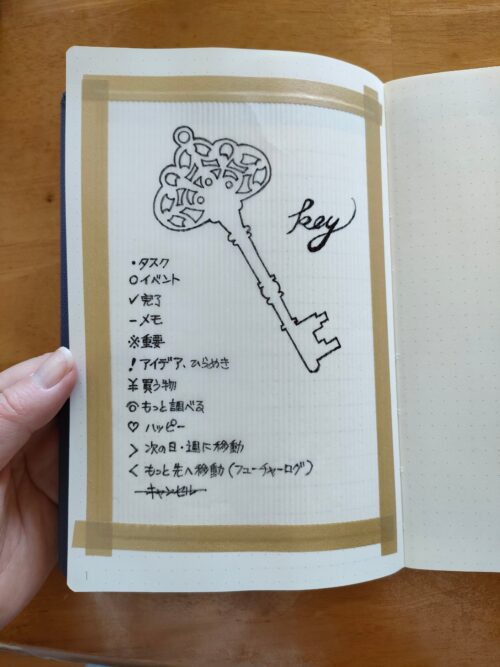 key
・タスク
○イベント
✓完了
−メモ
※重要
!アイデア、ひらめき
¥買う物
👁もっと調べる
♡ハッピー
>次の日・週に移動
<もっと先へ移動(フューチャーログ)
キャンセル
1